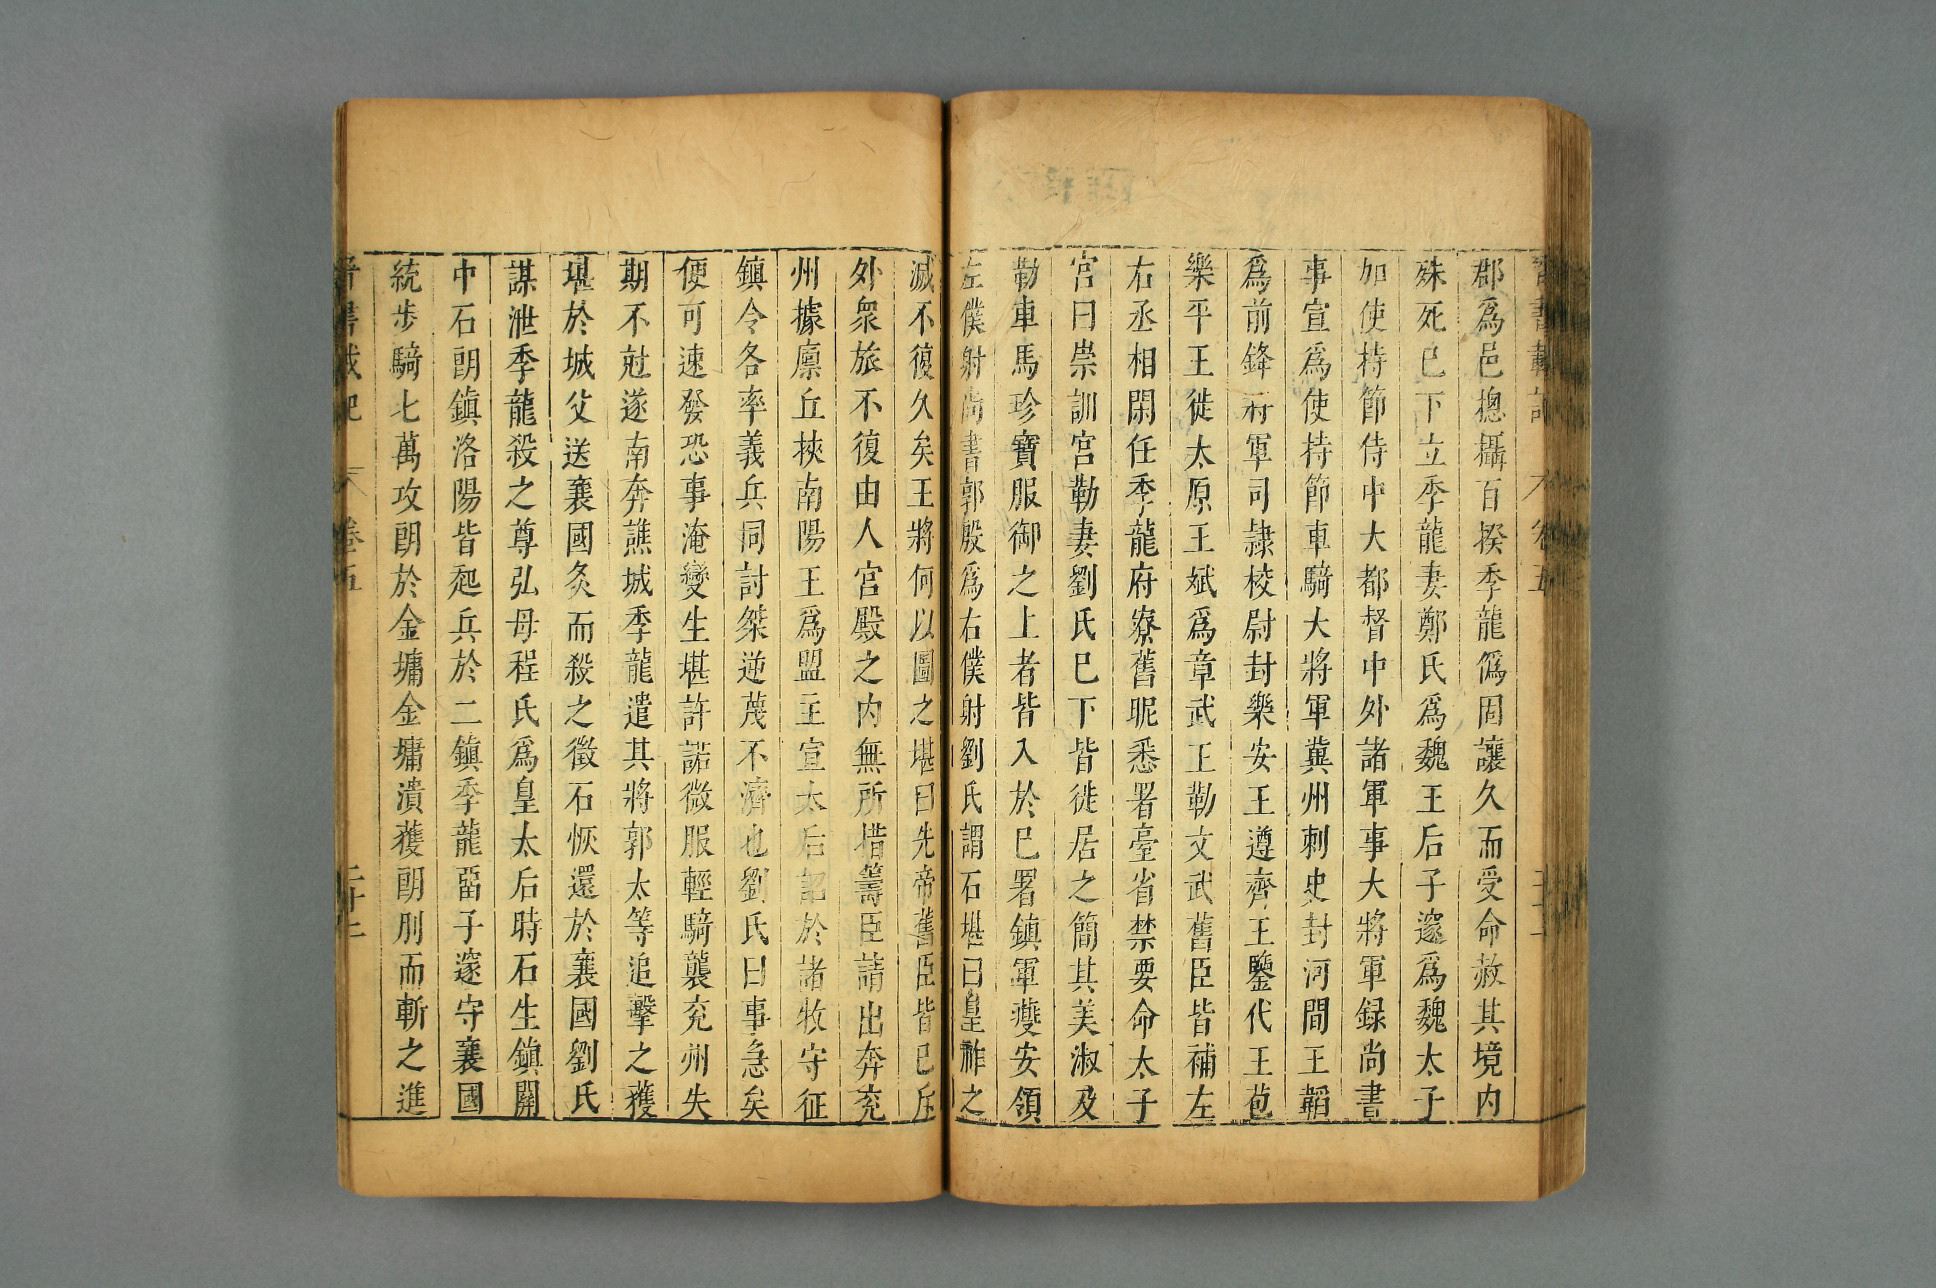 郡爲邑總攝百揆季龍僞固讓久而受命赦其境內
殊死已下立季龍妻鄭氏爲魏王后子邃爲魏太子
加使持節侍中大都督中外諸軍事大將軍録尚書
事宣爲使持節車騎大將軍冀州刺史封河間王韜
爲前鋒將軍司隷校尉封樂安王遵齊王鑒代王苞
樂平王徙太原王斌爲章武王勒文武舊臣皆補左
右丞相閑任季龍府寮舊昵悉署臺省禁要命太子
宮曰崇訓宮勒妻劉氏巳下皆徙居之簡其美淑及
勒車馬珍寶服御之上者皆入於巳署鎮軍夔安領
左僕射尚書郭殷爲右僕射劉氏謂石堪曰皇祚之
滅不復久矣王將何以圖之堪曰先帝舊臣皆已斥
外衆旅不復由人宮殿之内無所措籌臣請出奔兖
州據廩丘挾南陽王爲盟主宣太后詔於諸牧守征
鎮令各率義兵同討桀逆蔑不濟也劉氏曰事急矣
便可速發恐事淹變生堪許諾微服輕騎襲兖州失
期不尅遂南奔譙城季龍遣其將郭太等追擊之獲
堪於城父送襄國灸而殺之徵石恢還於襄國劉氏
謀泄季龍殺之尊弘母程氏爲皇太后時石生鎮關
中石朗鎮洛陽皆起兵於二鎮季龍留子邃守襄國
統步騎七萬攻朗於金墉金墉潰獲朗刖而斬之進
卷五